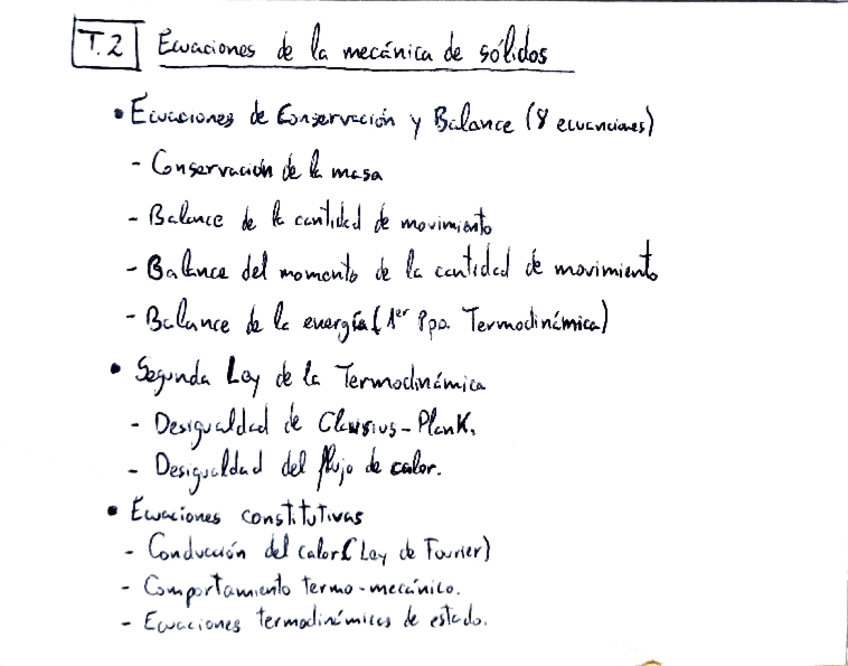 T.2 Ecuaciones de la mecánica de sólidos
• Ecuaciones de Conservación y Balance (8 ecuanciones)
- Conservación de la masa
- Balance de la cantidad de movimiento
- Balance del momento de la cantidad de movimiento
- Balance de la energía (1er Ppo. Termodinámica)
• Segunda Ley de la Termodinámica
- Desigualdad de Clausius-Plank.
- Desigualdad del flujo de calor.
• Ecuaciones constitutivas
- Conducción del calor (Ley de Fourier)
- Comportamiento termo-mecánico.
- Ecuaciones termodinámicas de estado.